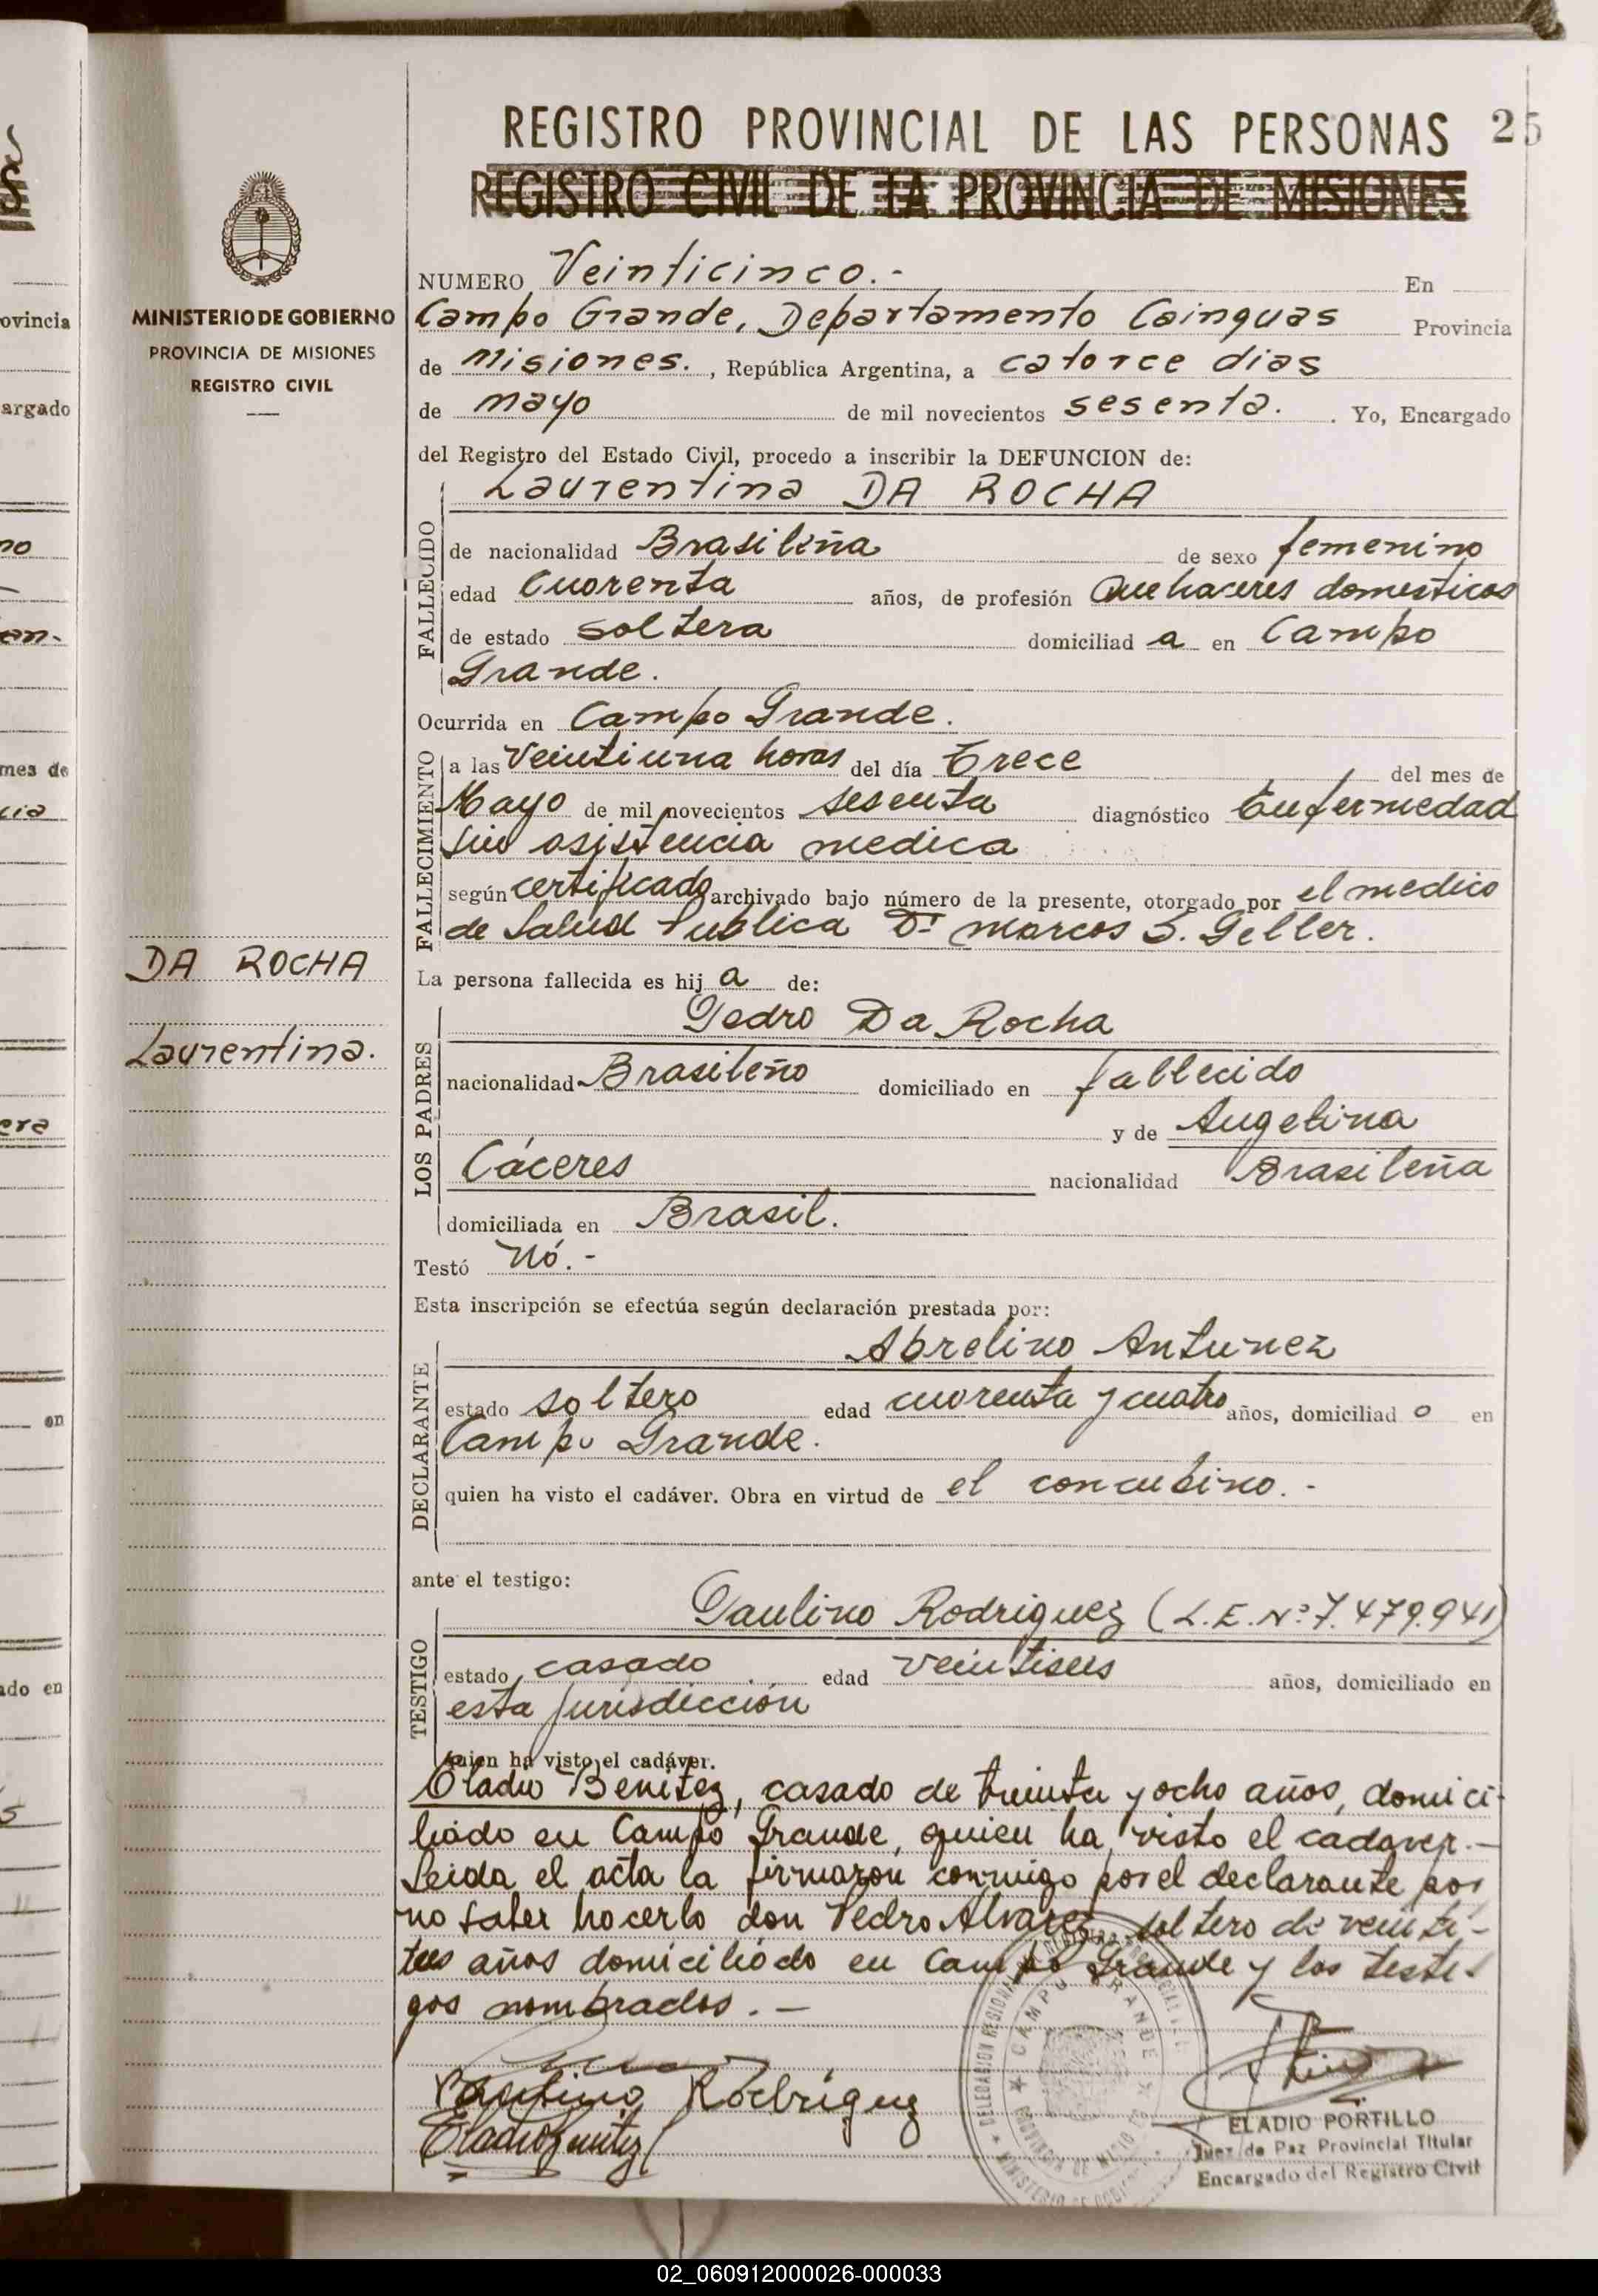 REGISTRO PROVINCIAL DE LAS PERSONAS 25
REGISTRO CIVIL DE LA PROVINCIA DE MISIONES
MINISTERIO DE GOBIERNO
PROVINCIA DE MISIONES
REGISTRO CIVIL
NUMERO Veinticinco.- En
Campo Grande, Departamento Cainguas Provincia
de Misiones. , República Argentina, a catorce dias
de mayo de mil novecientos sesenta. . Yo, Encargado
del Registro del Estado Civil, procedo a inscribir la DEFUNCION de:
Laurentina DA ROCHA
FALLECIDO
de nacionalidad Brasileña de sexo femenino
edad Cuarenta años, de profesión Quehaceres domesticos
de estado soltera domiciliad a en Campo
Grande.
Ocurrida en Campo Grande.
FALLECIMIENTO
a las Veintiuna horas del día Trece del mes de
Mayo de mil novecientos sesenta diagnóstico Enfermedad
sin asistencia medica
según certificado archivado bajo número de la presente, otorgado por el medico
de Salud Publica Dr Marcos S. Geller.
DA ROCHA
Laurentina.
La persona fallecida es hij a de:
LOS PADRES
Pedro Da Rocha
nacionalidad Brasileño domiciliado en fallecido
y de Angelina
Cáceres nacionalidad Brasileña
domiciliada en Brasil.
Testó Nó.-
Esta inscripción se efectúa según declaración prestada por:
DECLARANTE
Abrelino Antunez
estado soltero edad cuarenta y cuatro años, domiciliad o en
Campo Grande.
quien ha visto el cadáver. Obra en virtud de el concubino.-
ante el testigo:
TESTIGO
Paulino Rodriguez (L.E. Nº 7.479.941)
estado casado edad veintiseis años, domiciliado en
esta jurisdicción
quien ha visto el cadáver.
Eladio Benitez, casado de treinta y ocho años, domici-
liado en Campo Grande, quien ha visto el cadaver.-
Leida el acta la firmaron conmigo por el declarante por
no saber hacerlo don Pedro Alvarez soltero de veinti-
tres años domiciliado en Campo Grande y los testi-
gos nombrados.-
Paulino Rodriguez
Eladio Benitez
CAMPO GRANDE
ELADIO PORTILLO
Juez de Paz Provincial Titular
Encargado del Registro Civil
ovincia
argado
mes de
en
ado en
02_060912000026-000033